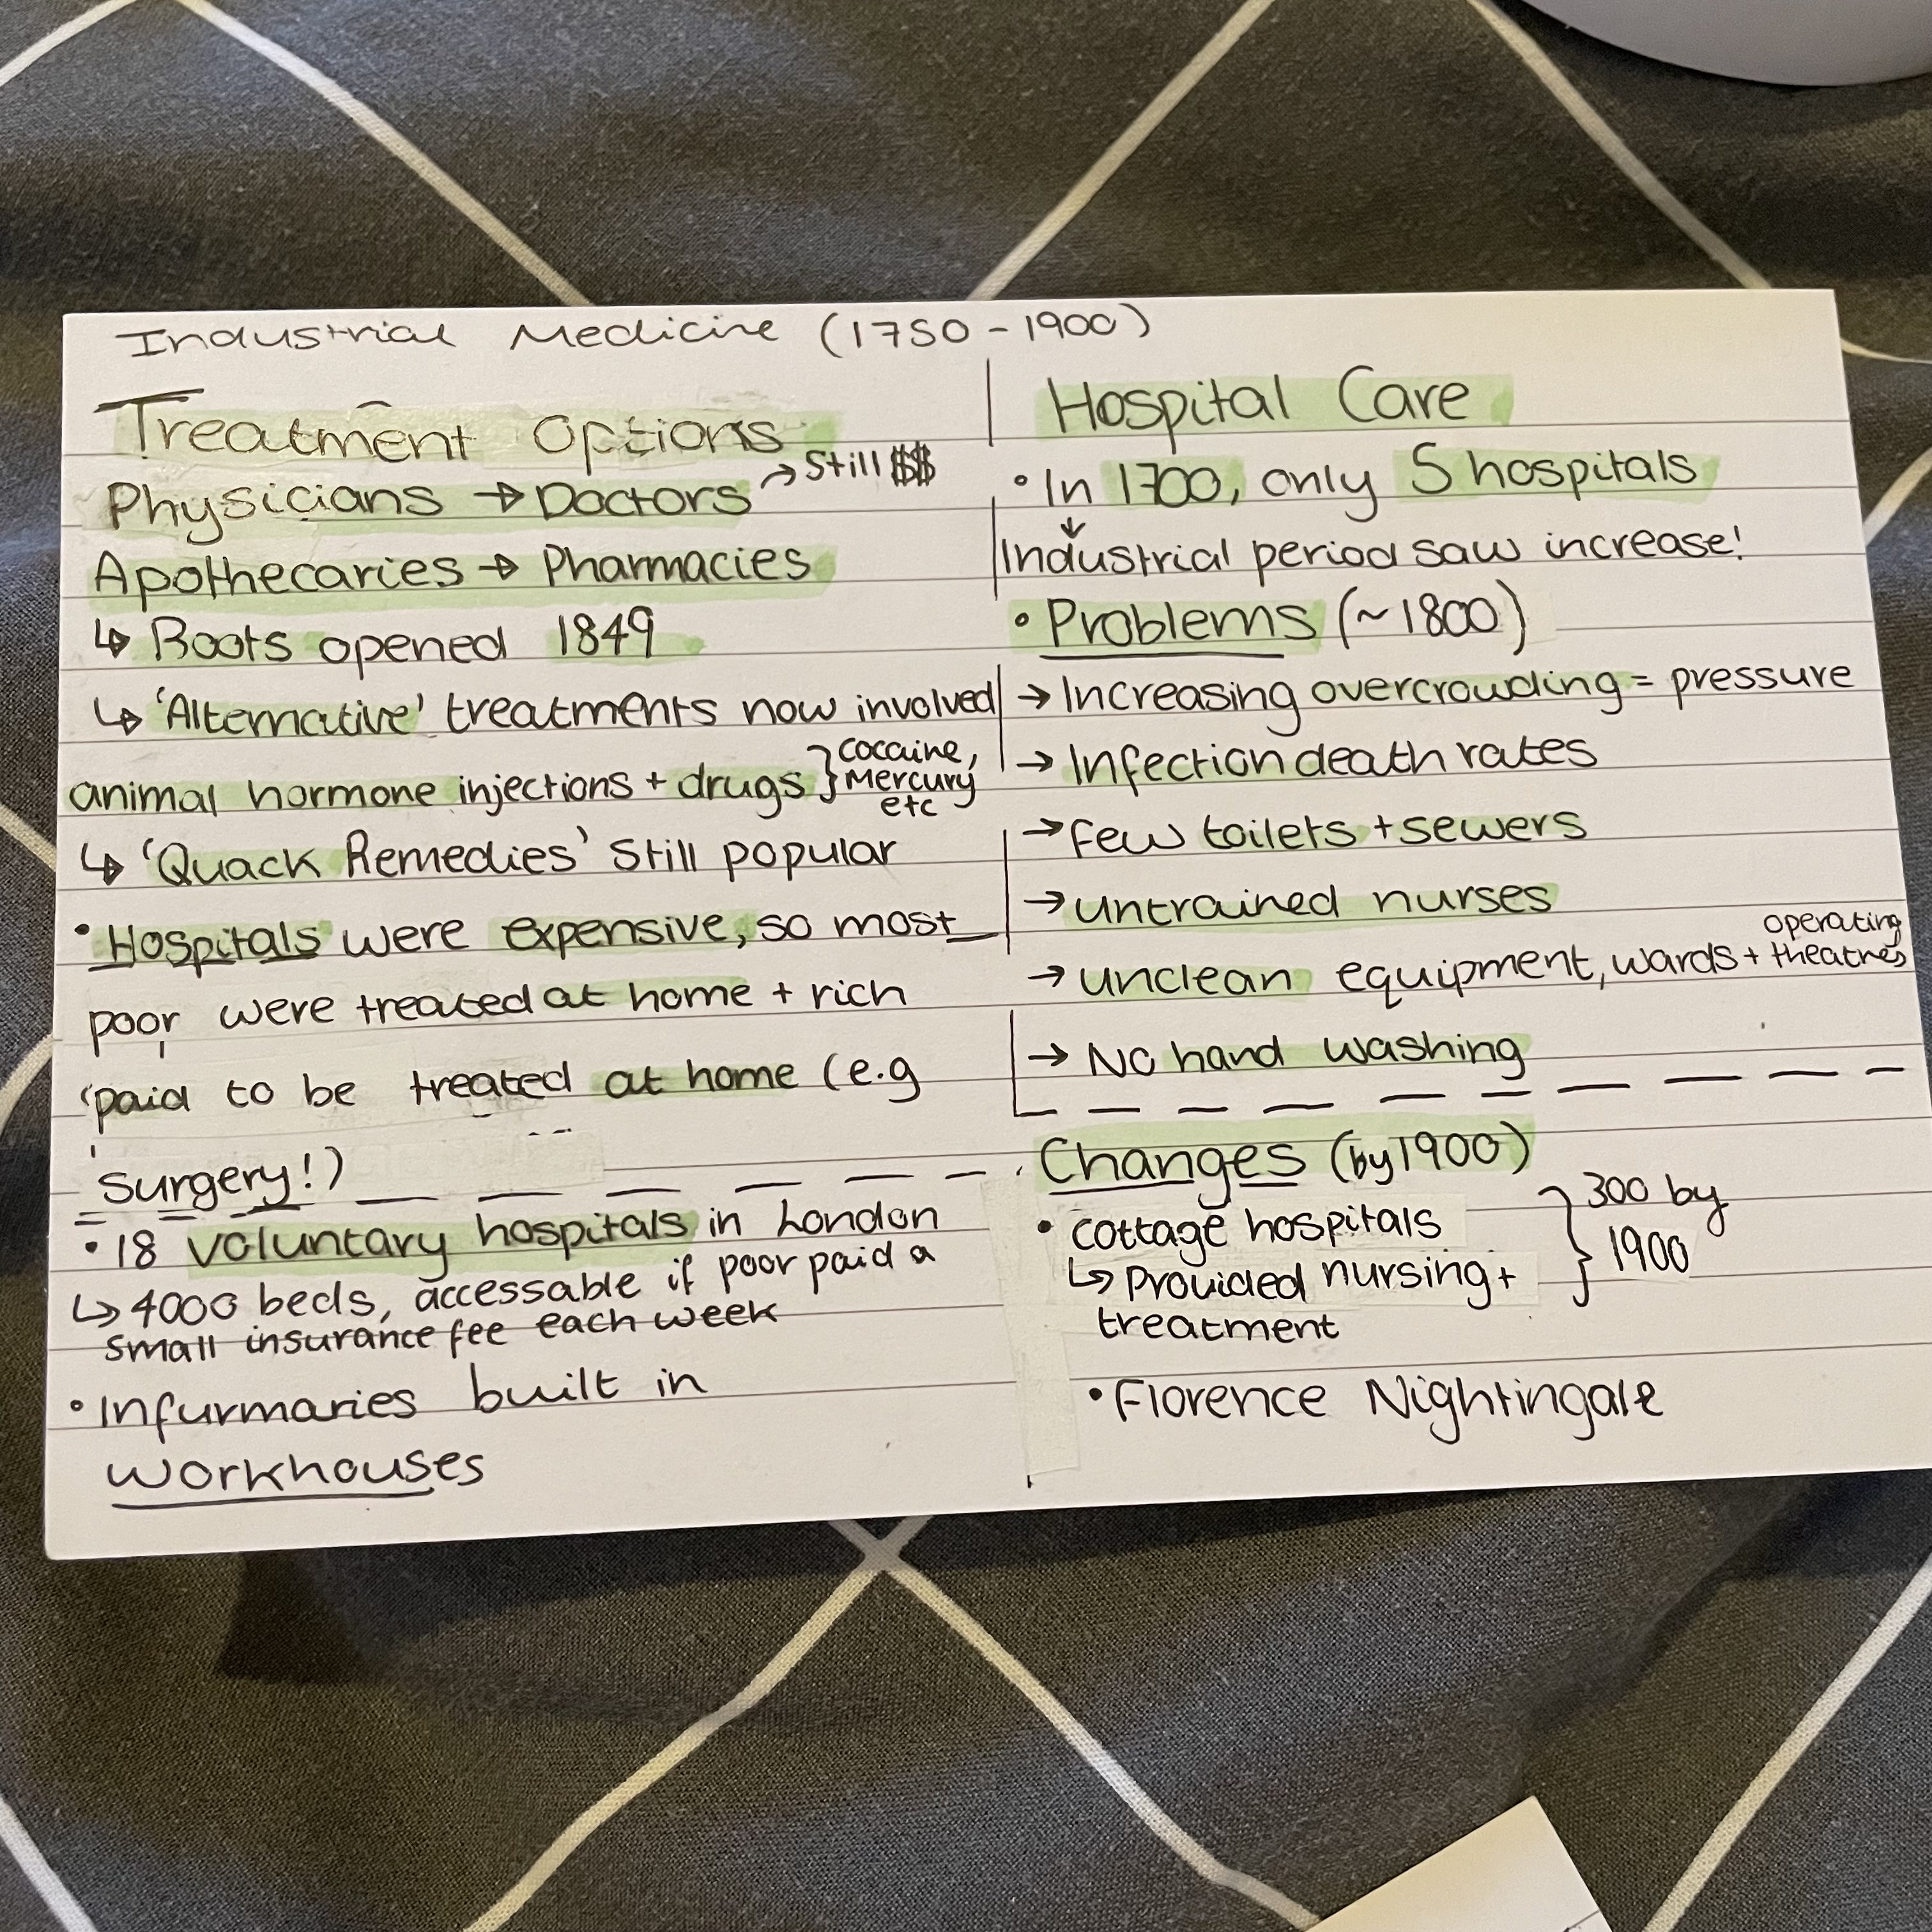 Industrial Medicine (1750 - 1900)
Treatment Options
Physicians → Doctors → Still $$
Apothecaries → Pharmacies
↳ Boots opened 1849
↳ 'Alternative' treatments now involved
animal hormone injections + drugs } cocaine,
Mercury
etc
↳ 'Quack Remedies' Still popular
• Hospitals were expensive, so most
poor were treated at home + rich
paid to be treated at home (e.g
surgery!)
• 18 voluntary hospitals in London
↳ 4000 beds, accessable if poor paid a
small insurance fee each week
• Infurmaries built in
workhouses
Hospital Care
• In 1700, only 5 hospitals
↓
Industrial period saw increase!
• Problems (~1800)
→ Increasing overcrowding = pressure
→ Infection death rates
→ few toilets + sewers
→ untrained nurses
→ unclean equipment, wards + operating
theatres
→ No hand washing
Changes (by 1900)
• cottage hospitals } 300 by
1900
↳ Provided nursing +
treatment
• Florence Nightingale